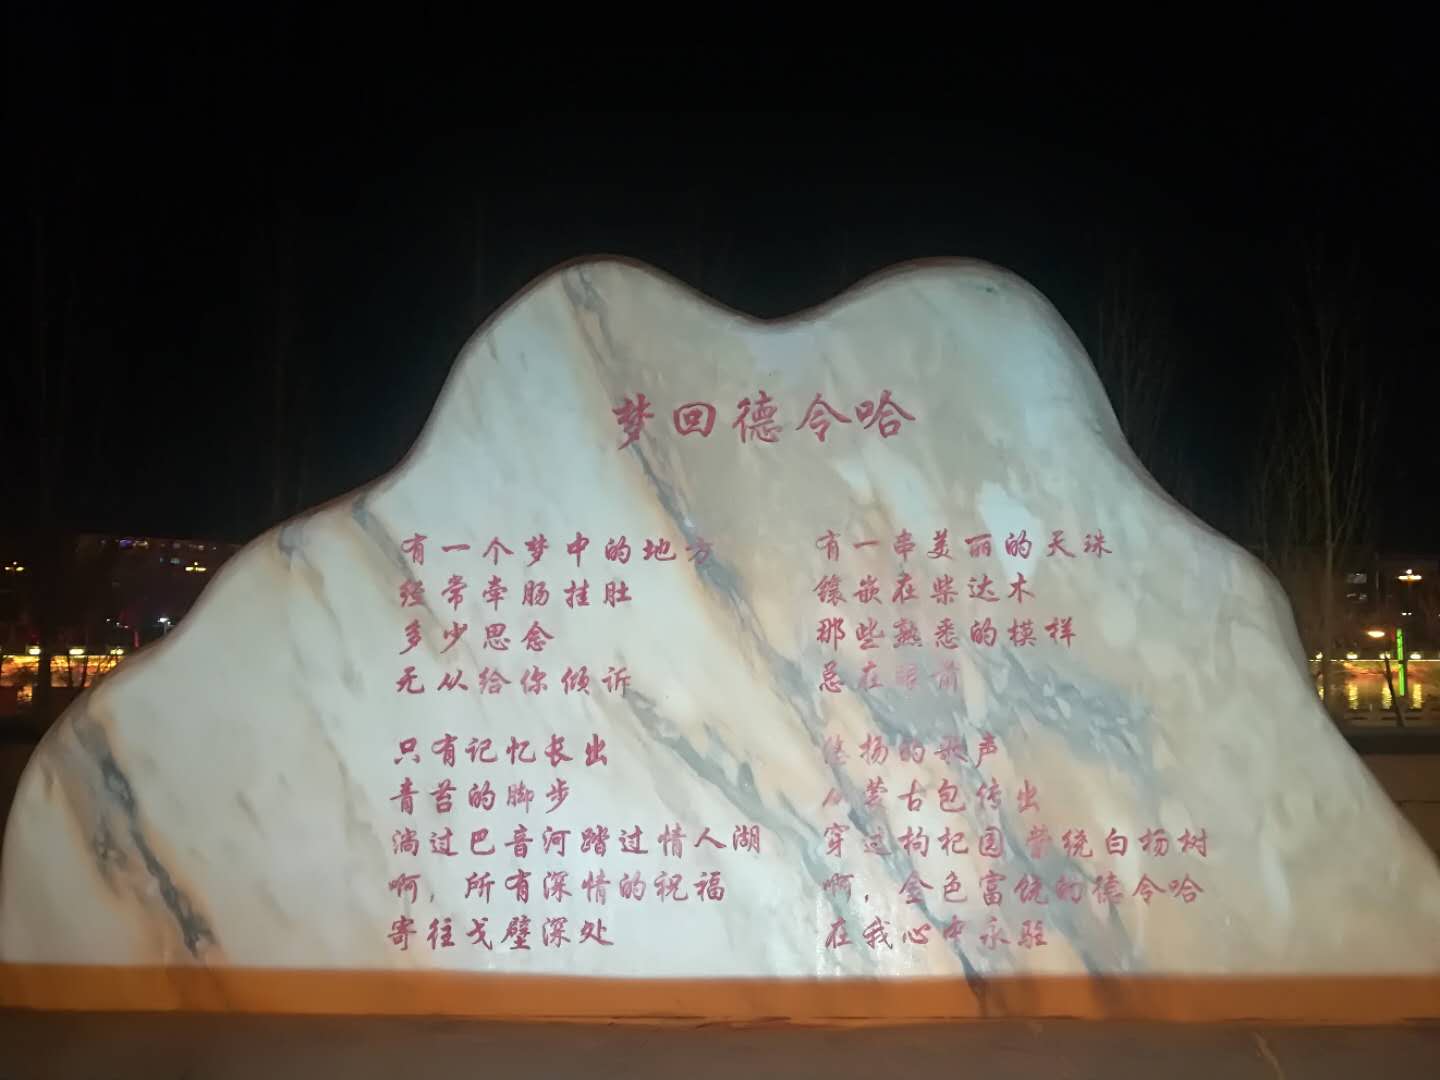 梦回德令哈
有一个梦中的地方
经常牵肠挂肚
多少思念
无从给你倾诉
只有记忆长出
青苔的脚步
淌过巴音河踏过情人湖
啊，所有深情的祝福
寄往戈壁深处
有一串美丽的天珠
镶嵌在柴达木
那些熟悉的模样
总在眼前
悠扬的歌声
从蒙古包传出
穿过枸杞园 萦绕白杨树
啊，金色富饶的德令哈
在我心中永驻